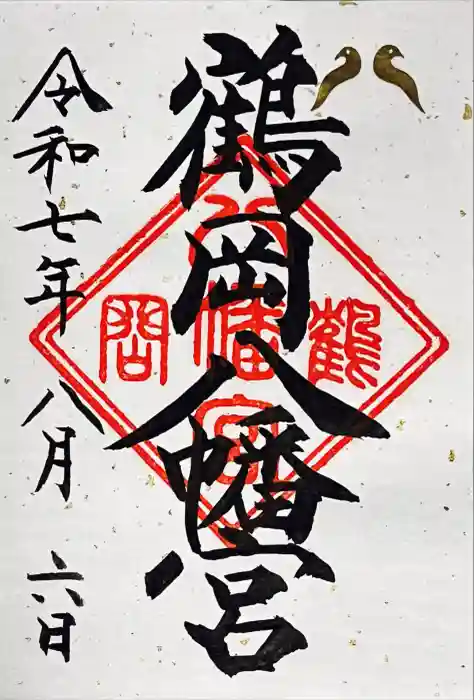 鶴岡八幡宮
令和七年八月六日
鶴岡
八幡宮